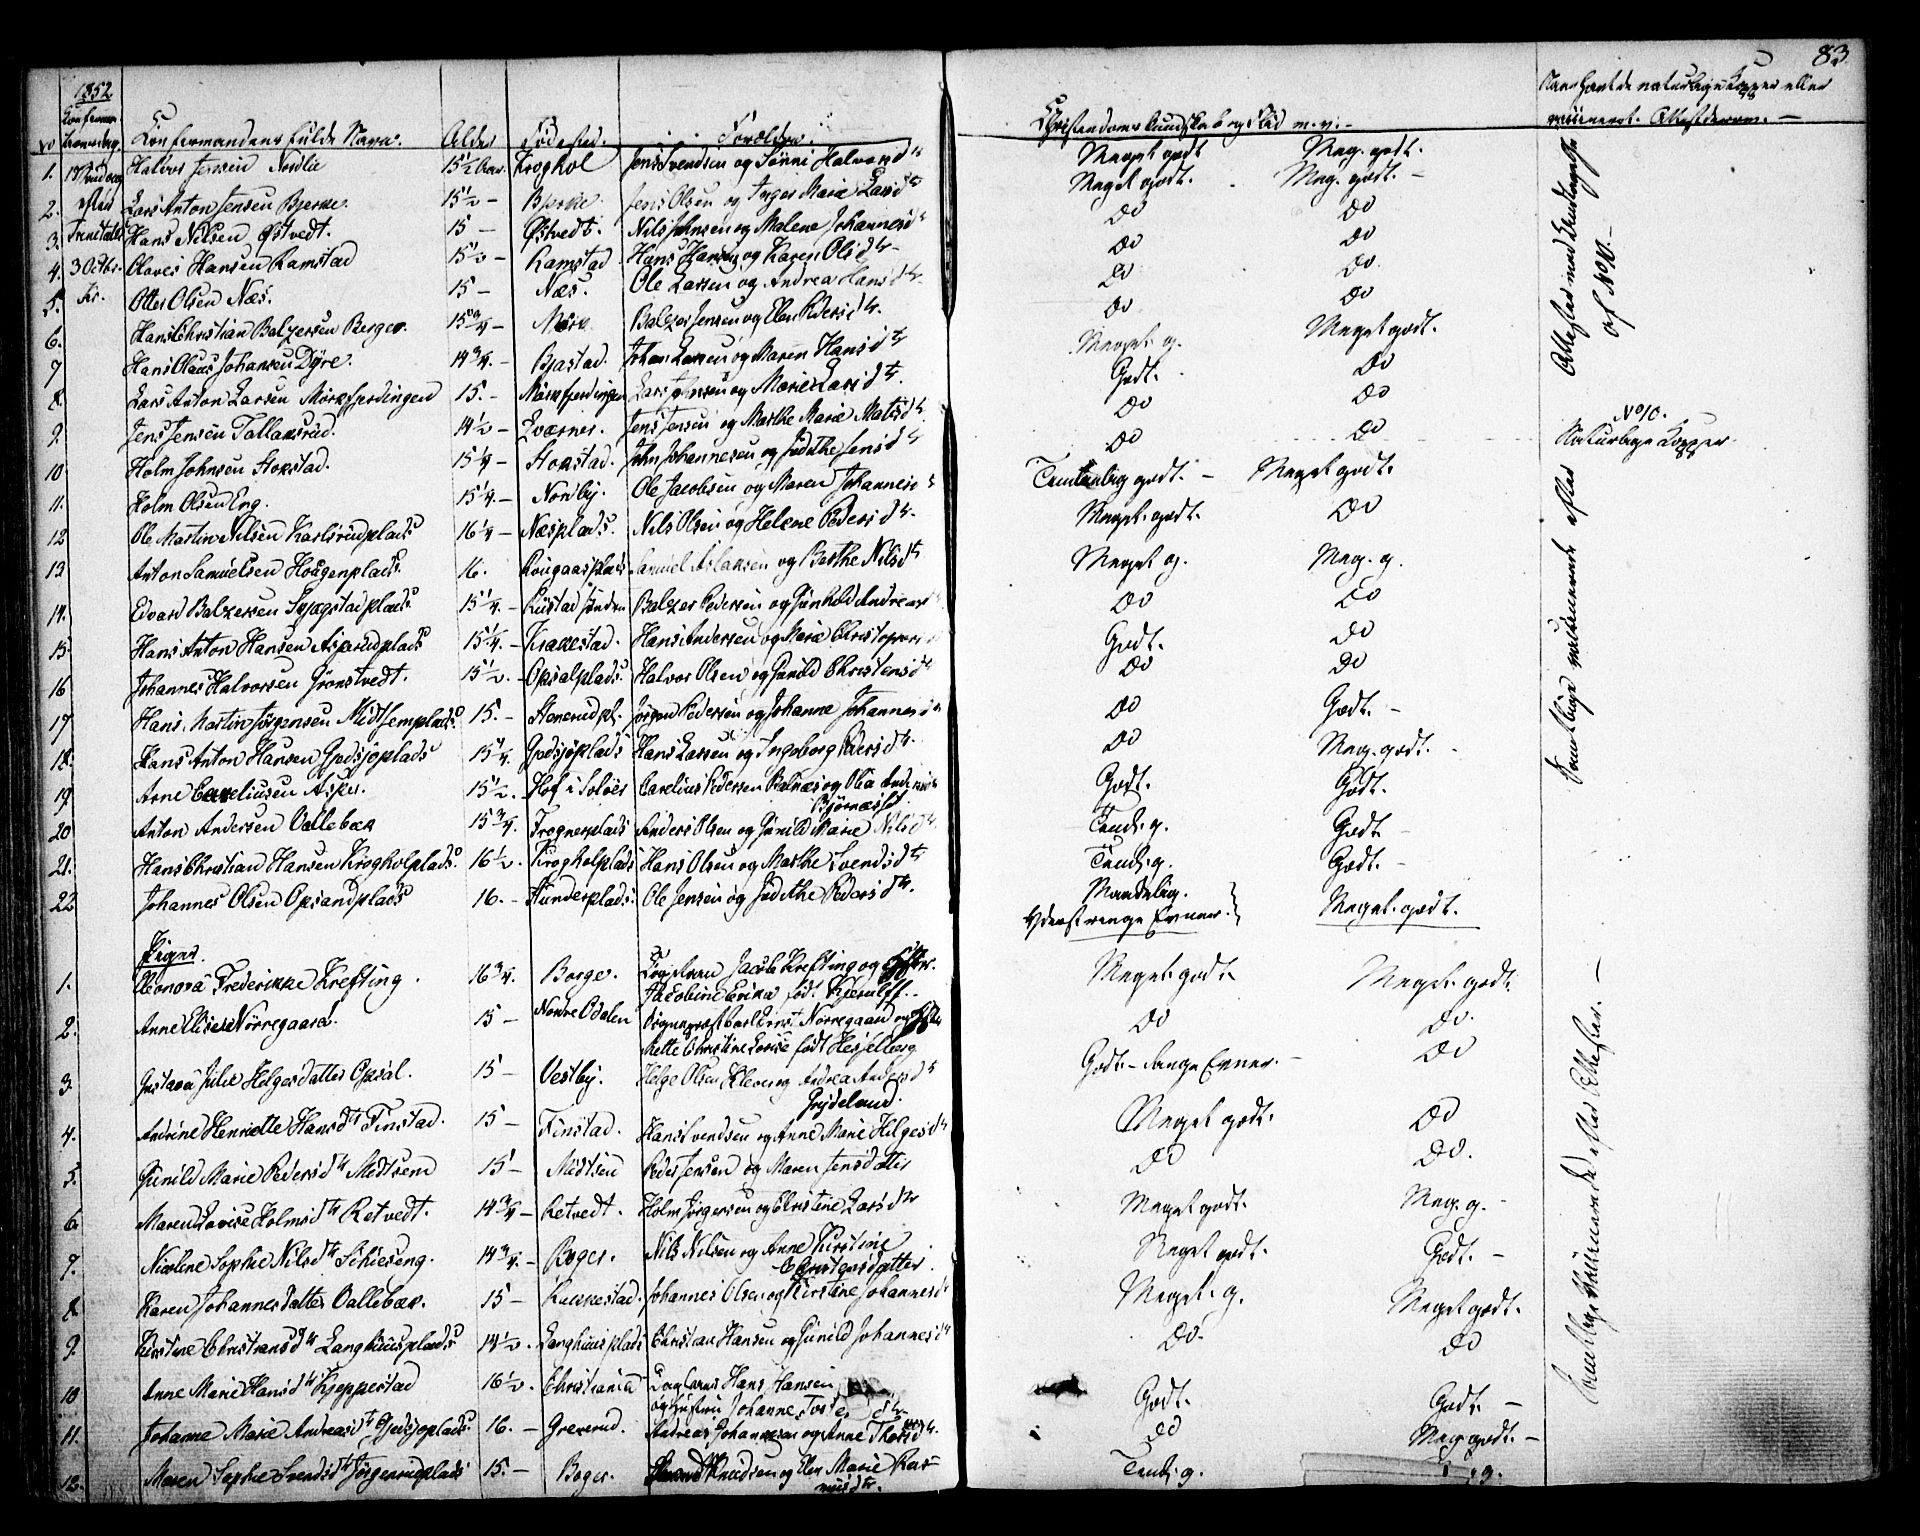 83
1852
Confirmationsdag.
No
Confirmandens fulde Navn.
Alder
Fødested.
Forældre.
Christendoms kundskab og Flid m.v.
Naar havt de naturlige Kopper eller vaccineret. Attesterom.
1. Halvor Jensen Nordli 15 1/2 Aar. Kroghol Jens Svendsen og Sønni Halvorsdtr Meget godt Meg. godt.
2. Lars Anton Jensen Bjerke. 15 1/2 – Bjerke. Jens Olsen og Inger Marie Larsdtr Meget godt. Meg. godt. –
3. Hans Nilsen Østvedt. 15 – Østvedt. Nils Johnsen og Malene Johannesdtr Do Do
4. 3 Octbr. Olaves Hansen Ramstad 15 1/2 – Ramstad Hans Hansen og Karen Olsdtr – Do Do
5. Otter Olsen Næs. 15 – Næs. Ole Larsen og Andrea Hansdtr. Do Do
6. Hans Christian Balzersen Berger. 15 3/4 – Mørk Balzer Jensen og Ellen Pedersdtr. Do Do
7 Hans Olaus Johansen Dyre. 14 3/4. – Bjastad. Johan Larsen og Maren Hansdtr Meget g. Meget godt.
8. Lars Anton Larsen Mørkfjerdingen 15. – Mørkfjerdingen Lars Johnsen og Marie Larsdtr. Godt. Do
9. Jens Jensen Tallaksrud. 14 1/2 – Qværner. Jens Jensen og Marthe Marie Matisdtr. Do Do
10 Holm Johnsen Stokstad. 15 1/4 – Stokstad. John Johannesen og Judithe Jensdtr Do Do
11. Holm Olsen Eng. 15 1/4. – Nordby. Ole Jacobsen og Maren Johannesd Temmelig godt. – Meget godt.
12 Ole Martin Nilsen Karlsrudplads 16 1/4 – Næsplads. Nils Olsen og Helene Pedersdtr. Meget godt. Do
13 Anton Samuelsen Hougenplads. 16. Rougaasplads Samuel Aslaksen og Berthe Nilsdtr Meget g. Meg. g.
14. Edvard Balzersen Skjægstadplads. 15 1/4. – Rustad Søndre Balzer Pedersen og Gunhild Andreas Do Do
15 Hans Anton Hansen Asperudplads 15 1/4. – Krakkestad. Hans Andersen og Marie Christophers Godt. Do
16 Johannes Halvorsen Grønstvedt. 15 1/2. – Opsalplads. Halvor Olsen og Gunild Christensdtr Do Do
17 Hans Martin Jørgensen Midtsemplads. 15. – Stenerudpl. Jørgen Pedersen og Johanne Johannesd Do Godt. –
18. Hans Anton Hansen Gjedsjøplads 15 1/4. Gjedsjøplads Hans Larsen og Ingeborg Pedersdtr. Do Meg. godt.
19 Arne Careliusen Asper. 15 1/2. Hof i Soløer Carelius Pedersen Balnæs og Olia Andersdtr Bjørnæs Godt. Godt.
20 Anton Andersen Vallebæk 15 3/4. Frognerplads Anders Olsen og Gunild Marie Nilsd Teml. g. Godt –
21. Hans Christian Hansen Krogholplads. 16 1/2. Krogholplads Hans Olsen og Marthe Svendsdtr Teml. g. Godt. –
22 Johannes Olsen Opsandplads 16. – Hunderplads. Ole Jensen og Judithe Pedersdtr. Maadelig. Yderst ringe Evner. Meget godt.
Piger.
1. Eleonora Frederikke Krefting. 16 3/4. Borge. Jacob Krefting og Hustru Jacobine Erika født Kjerulff. Meget godt. Meget godt.
2. Anne Elise Nørregaard. 15 – Nordre Odalen Carl Ernst Nørregaard og Mette Christine Lovise født Hesselberg Do Do.
3. Gustava Julie Helgesdatter Opsal. 15 – Vestby. Helge Olsen Kleven og Andrea Andersdtr Grydeland. Godt – Svage Evner. – Do
4. Andrine Henriette Hansdtr Finstad. 15 – Finstad. Hans Svendsen og Anne Marie Helgesdtr Meget godt. Do
5. Gunild Marie Pedersdtr Midtsem 15 – Midtsem Peder Jensen og Maren Jensdatter Do Do.
6. Maren Lovise Holmsdtr Retvedt. 14 3/4 – Retvedt. Holm Jørgensen og Christine Larsdtr Meget godt. Meg. g. –
7. Nicoline Sophie Nilsdtr Schieseng. 14 3/4. – Boger. Nils Nilsen og Anne Kirstine Christensdatter. Meget godt. Godt. –
8. Karen Johannesdatter Vallebæk. 15 – Krakkestad. Johannes Olsen og Kirstine Johannesd Meget g. Meget godt.
9. Kirstine Christiansdtr Langhuusplads 14 1/2. Langhuusplads Christian Hansen og Gunild Johannesdtr Do. Do
10 Anne Marie Hansdtr Kjeppestad 16 1/2. Christiania Hans Hansen og Hustru Johanne Godt. Godt. –
11. Johanne Marie Andreasdtr Gjedsjøplads. 16. – Greverud. Andreas Johannesen og Anne Thorsdtr. Do Meg. godt. –
12. Maren Sophie Svendsdtr Jørgenrudplads 15. – Boger. Svend Knudsen og Ellen Marie Rasmusdtr. Teml. g. g.
Attester med Undtagelse af No 10. –
No 10. Naturlige Kopper
Samtlige vaccinerede efter
Samtlige Vaccinerede efter Attester. –